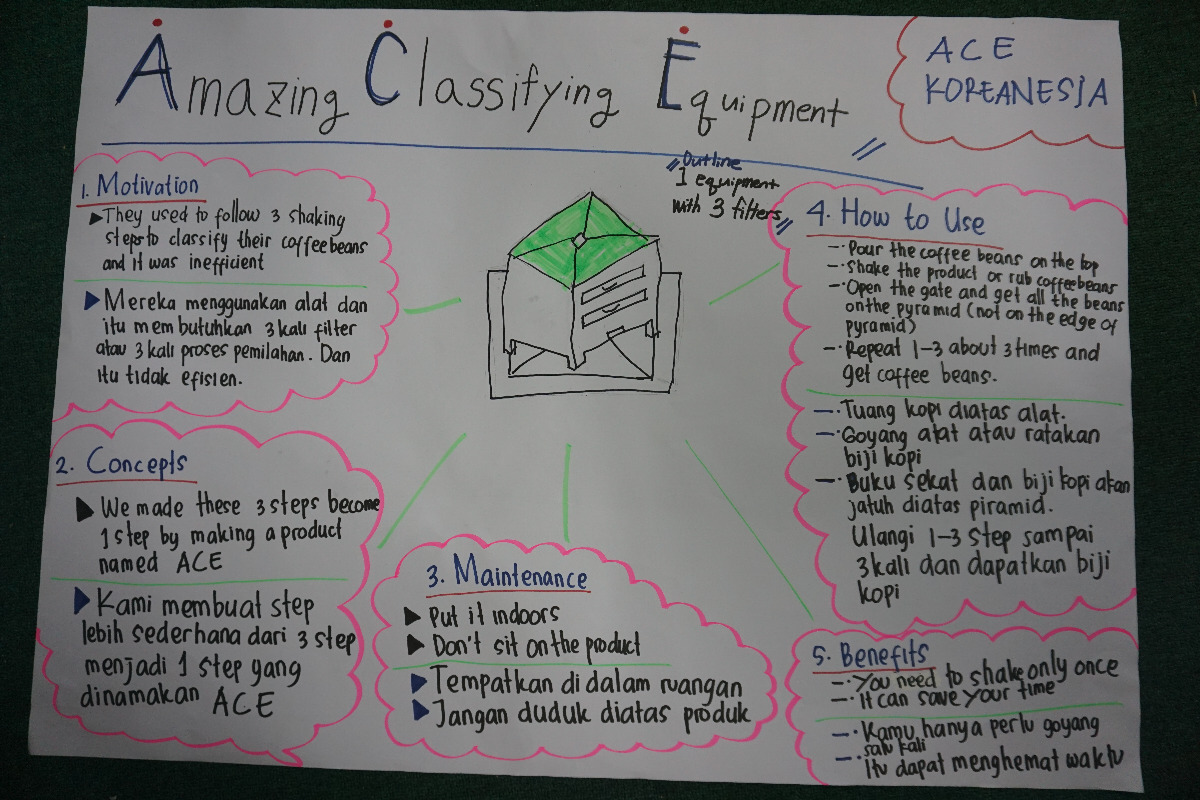 Amazing Classifying Equipment
ACE
KOREANESIA
Outline
1 equipment
with 3 filters
1. Motivation
They used to follow 3 shaking
steps to classify their coffee beans
and it was inefficient
Mereka menggunakan alat dan
itu membutuhkan 3 kali filter
atau 3 kali proses pemilahan. Dan
itu tidak efisien.
2. Concepts
We made these 3 steps become
1 step by making a product
named ACE
Kami membuat step
lebih sederhana dari 3 step
menjadi 1 step yang
dinamakan ACE
3. Maintenance
Put it indoors
Don't sit on the product
Tempatkan di dalam ruangan
Jangan duduk diatas produk
4. How to Use
- Pour the coffee beans on the top
- Shake the product or rub coffee beans
- Open the gate and get all the beans
on the pyramid (not on the edge of
pyramid)
- Repeat 1-3 about 3 times and
get coffee beans.
- Tuang kopi diatas alat.
- Goyang alat atau ratakan
biji kopi
- Buku sekat dan biji kopi akan
jatuh diatas piramid.
Ulangi 1-3 step sampai
3 kali dan dapatkan biji
kopi
5. Benefits
- You need to shake only once
- it can save your time
- Kamu hanya perlu goyang
satu kali
- Itu dapat menghemat waktu